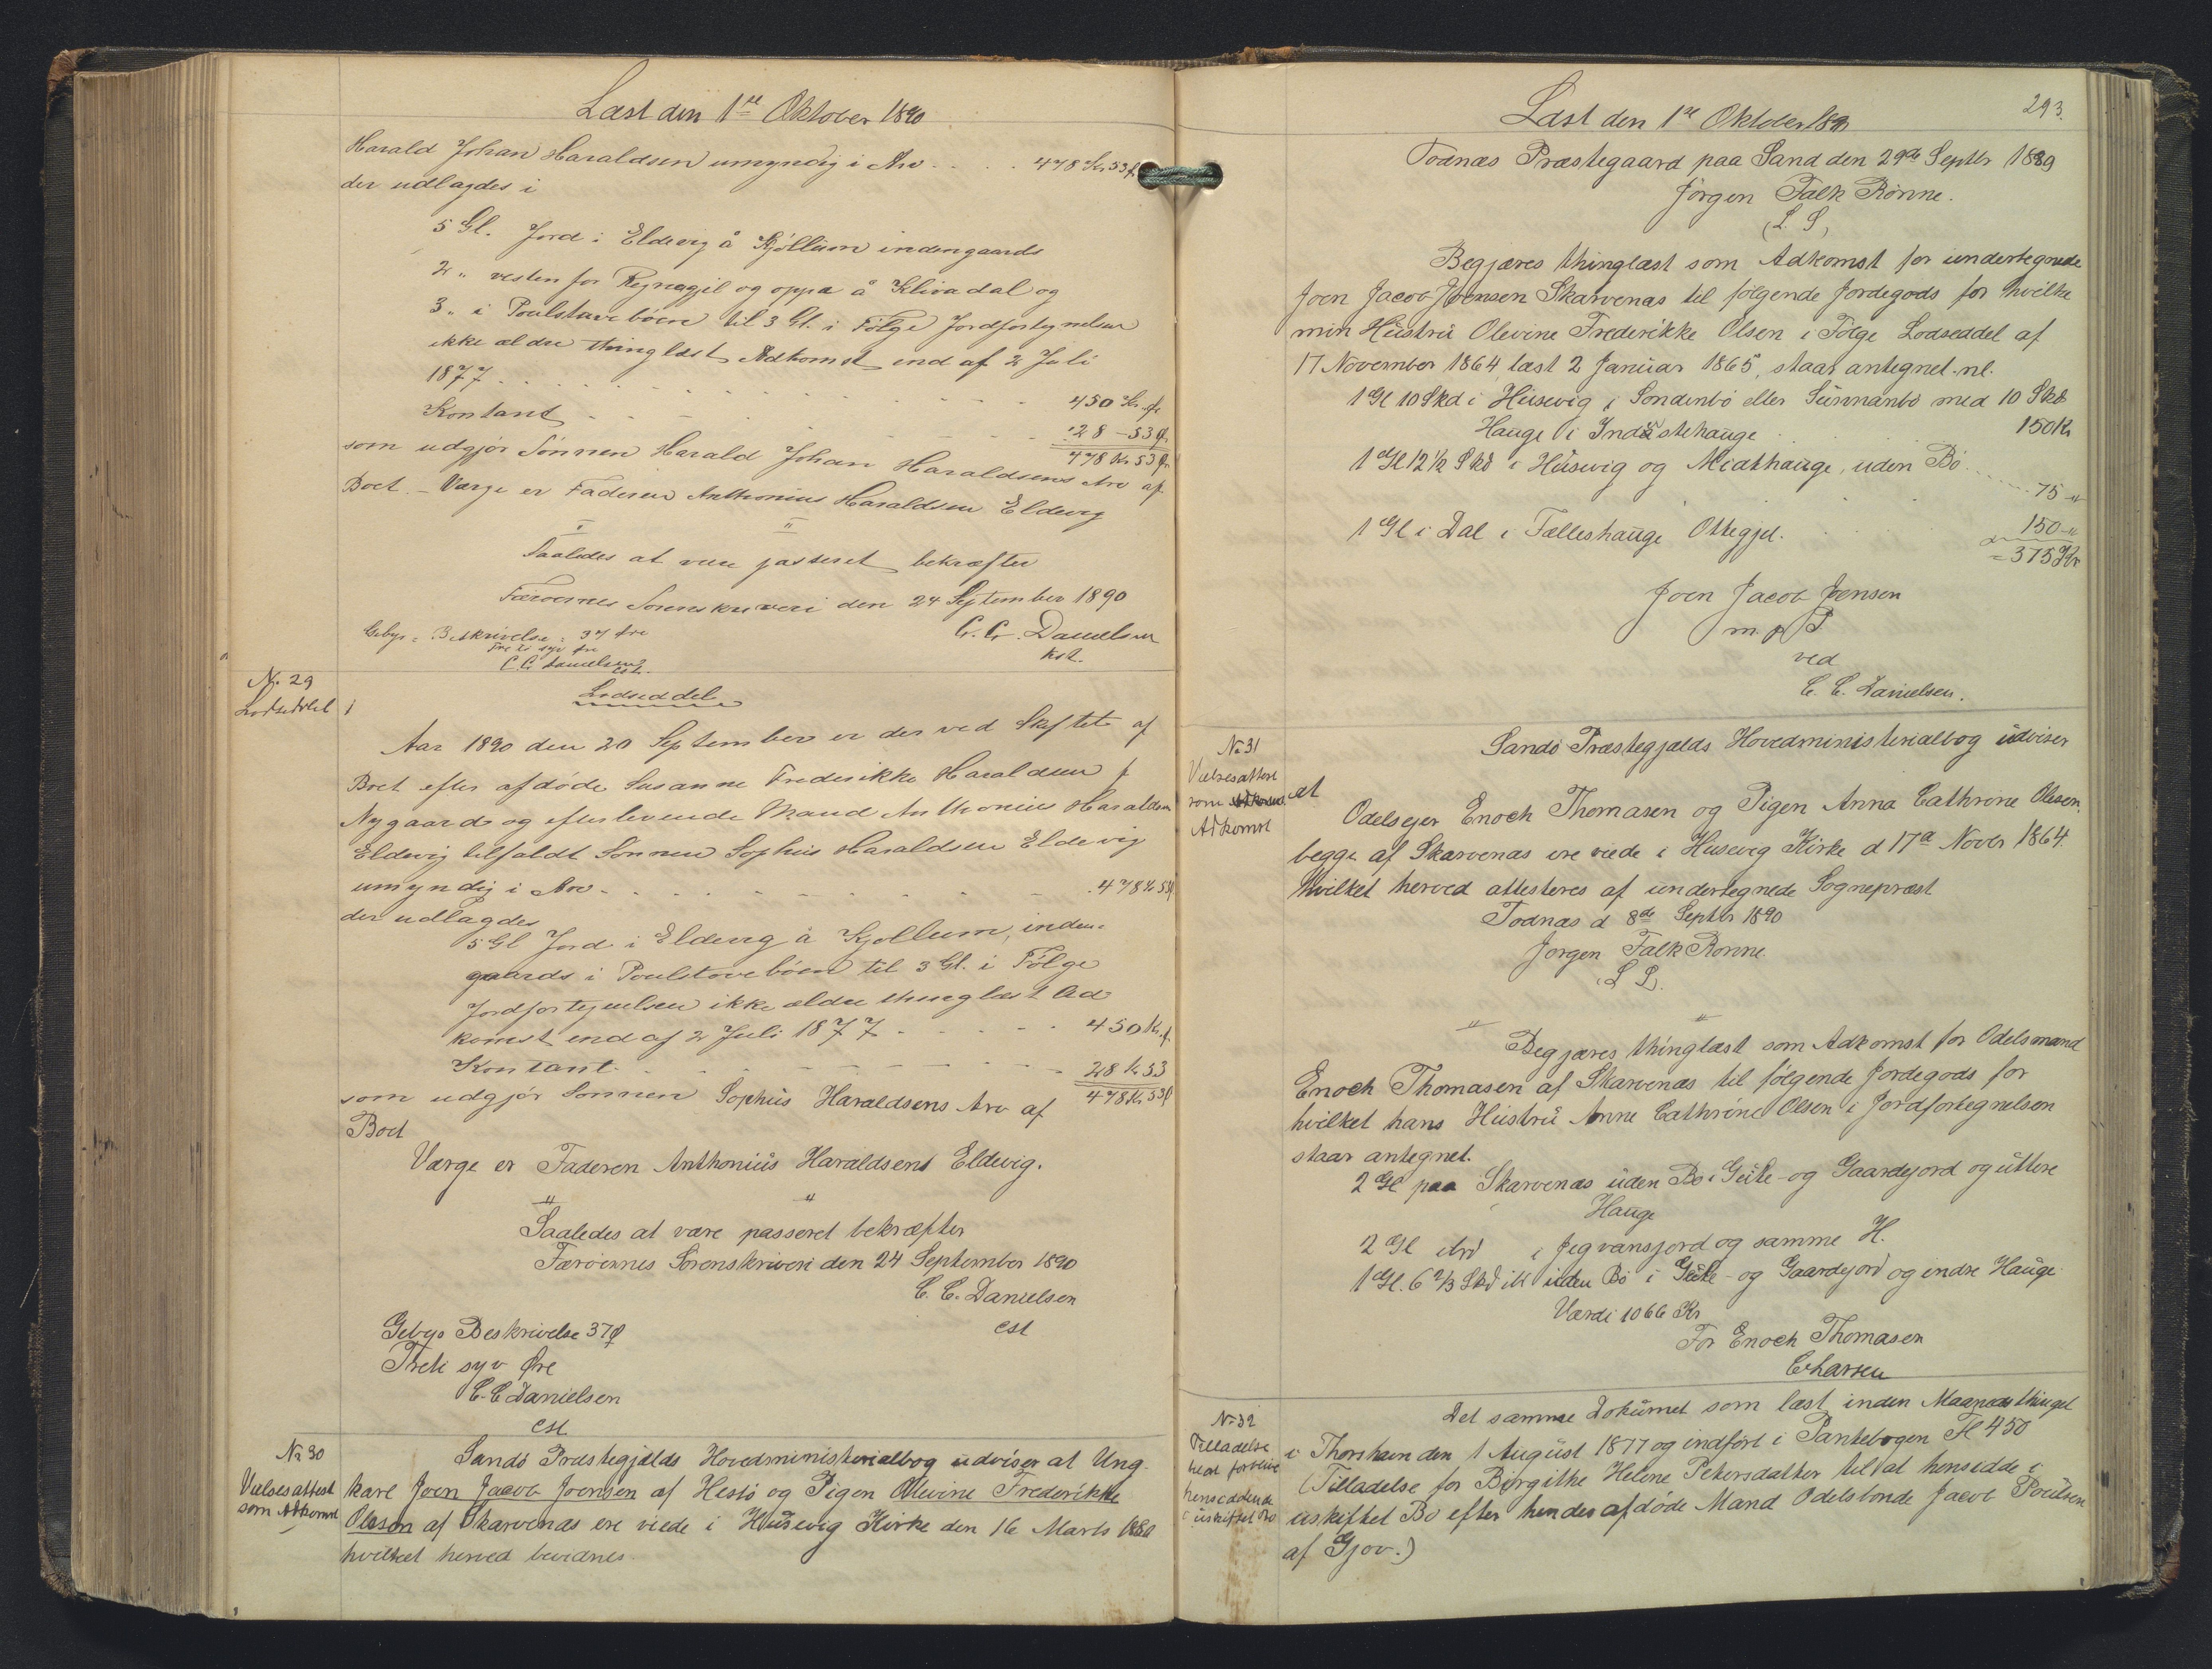 Læst den 1ste Oktober 1890
Harald Johan Haraldsen umyndig i Arv . . . . 478 Kr. 53 ø.
der udlagdes i
5 Gl. Jord i Eldevig å Kjøllum indengaards
2 „ vesten for Regnagjil og oppa å Klivadal og
3 „ i Poulstovebøen til 3 Gl. i Følge Jordfortegnelsen
ikke ældre thinglæst Adkomst end af 2 Juli
1877 . . . . . 450 Kr. ø.
Kontant . . . . . 28 – 53 ø.
478 Kr 53 ø.
som udgjør Sønnen Harald Johan Haraldsens Arv af
Boet. – Værge er Faderen Anthonius Haraldsen Eldevig
" "
Saaledes at være passeret bekræfter
Færøernes Sorenskriveri den 24 September 1890
Gebyr: Beskrivelse: 37 Øre
C. C. Danielsen
Treti syv Øre
cst.
C. C. Danielsen
cst.
N. 29
Lodseddel
Lodseddel
Aar 1890 den 20 September er der ved Skiftet af
Boet efter afdøde Susanne Frederikke Haraldsen f
Nygaard og efterlevende Mand Anthonius Haraldsen
Eldevig tilfaldt Sønnen Sophus Haraldsen Eldevig
umyndig i Arv . . . . . 478 Kr 53 ø
der udlagdes
5 Gl Jord i Eldevig å Kjøllum, inden-
gaards i Poulstovebøen til 3 Gl. i Følge
Jordfortegnelsen ikke ældre thinglæst Ad
komst end af 2 Juli 1877 . . . . 450 Kr. ø.
Kontant . . . . . 28 Kr 53
som udgjør Sønnen Sophus Haraldsens Arv af 478 Kr 53 ø
Boet
Værge er Faderen Anthonius Haraldsens Eldevig.
" "
Saaledes at være passeret bekræfter
Færøernes Sorenskriveri den 24 September 1890
C. C. Danielsen
cst
Gebyr Beskrivelse 37 ø
Treti syv Øre
C. C Danielsen
cst
No 30
Vielsesattest
som Adkomst
Sandø Præstegjælds Hovedministerialbog udviser at Ung-
karl Joen Jacob Joensen af Hestø og Pigen Olevine Frederikke
Olesen af Skarvenæs ere viede i Husevig Kirke den 16 Marts 1880
hvilket herved bevidnes
293.
Læst den 1ste Oktober 1890
Todnæs Præstegaard paa Sand den 29de Septbr 1889
Jørgen Falk Rønne.
(L. S.)
Begjæres thinglæst som Adkomst for undertegnede
Joen Jacob Joensen Skarvenæs til følgende Jordegods for hvilke
min Hustru Olevine Frederikke Olsen i Følge Lodseddel af
17 November 1864 læst 2 Januar 1865, staar antegnet. nl.
1 Gl 10 Skd i Husevig i Sondenbø eller Sunnanbø med 10 Skd
Hauge i Indastehauge . . . 150 Kr
1 Gl 12½ Skd i Husevig og Midthauge, uden Bø . . . 75 – "
1 Gl i Dal i Fælleshauge Ottegjd. . . . 150 – "
= 375 Kr
Joen Jacob Joensen
m. p. P.
ved
C. C. Danielsen.
No 31
Vielsesattest
som
Adkomst
Sandø Præstegjælds Hovedministerialbog udviser
at
Odelsejer Enoch Thomasen og Pigen Anna Cathrine Olesen,
begge af Skarvenæs ere viede i Husevig Kirke d 17de Novbr 1864.
hvilket herved attesteres af undertegnede Sognepræst
Todnæs d 8de Septbr 1890
Jørgen Falk Rønne.
(L S).
" "
Begjæres thinglæst som Adkomst for Odelsmand
Enoch Thomasen af Skarvenæs til følgende Jordegods for
hvilket hans Hustru Anne Cathrine Olsen i Jordfortegnelsen
staar antegnet.
2 Gl paa Skarvenæs uden Bø i Geile- og Gaardejord og uttere
Hauge
2 Gl i Jegvansjord og samme H.
1 Gl. 6 2/3 Skd uden Bø i Geile- og Gaardejord og indre Hauge
Værdi 1066 Kr
For Enoch Thomasen
C. Larsen
No 32
Tilladelse
til at forblive
hensiddende
i uskiftet Bo
Det samme Dokument som læst inden Maanedsthinget
i Thorshavn den 1 August 1877 og indført i Pantebogen Fl 450
(Tilladelse for Birgithe Helene Petersdatter til at hensidde i
uskiftet Bo efter hendes afdøde Mand Odelsbonde Jacob Poulsen
af Gjov.)